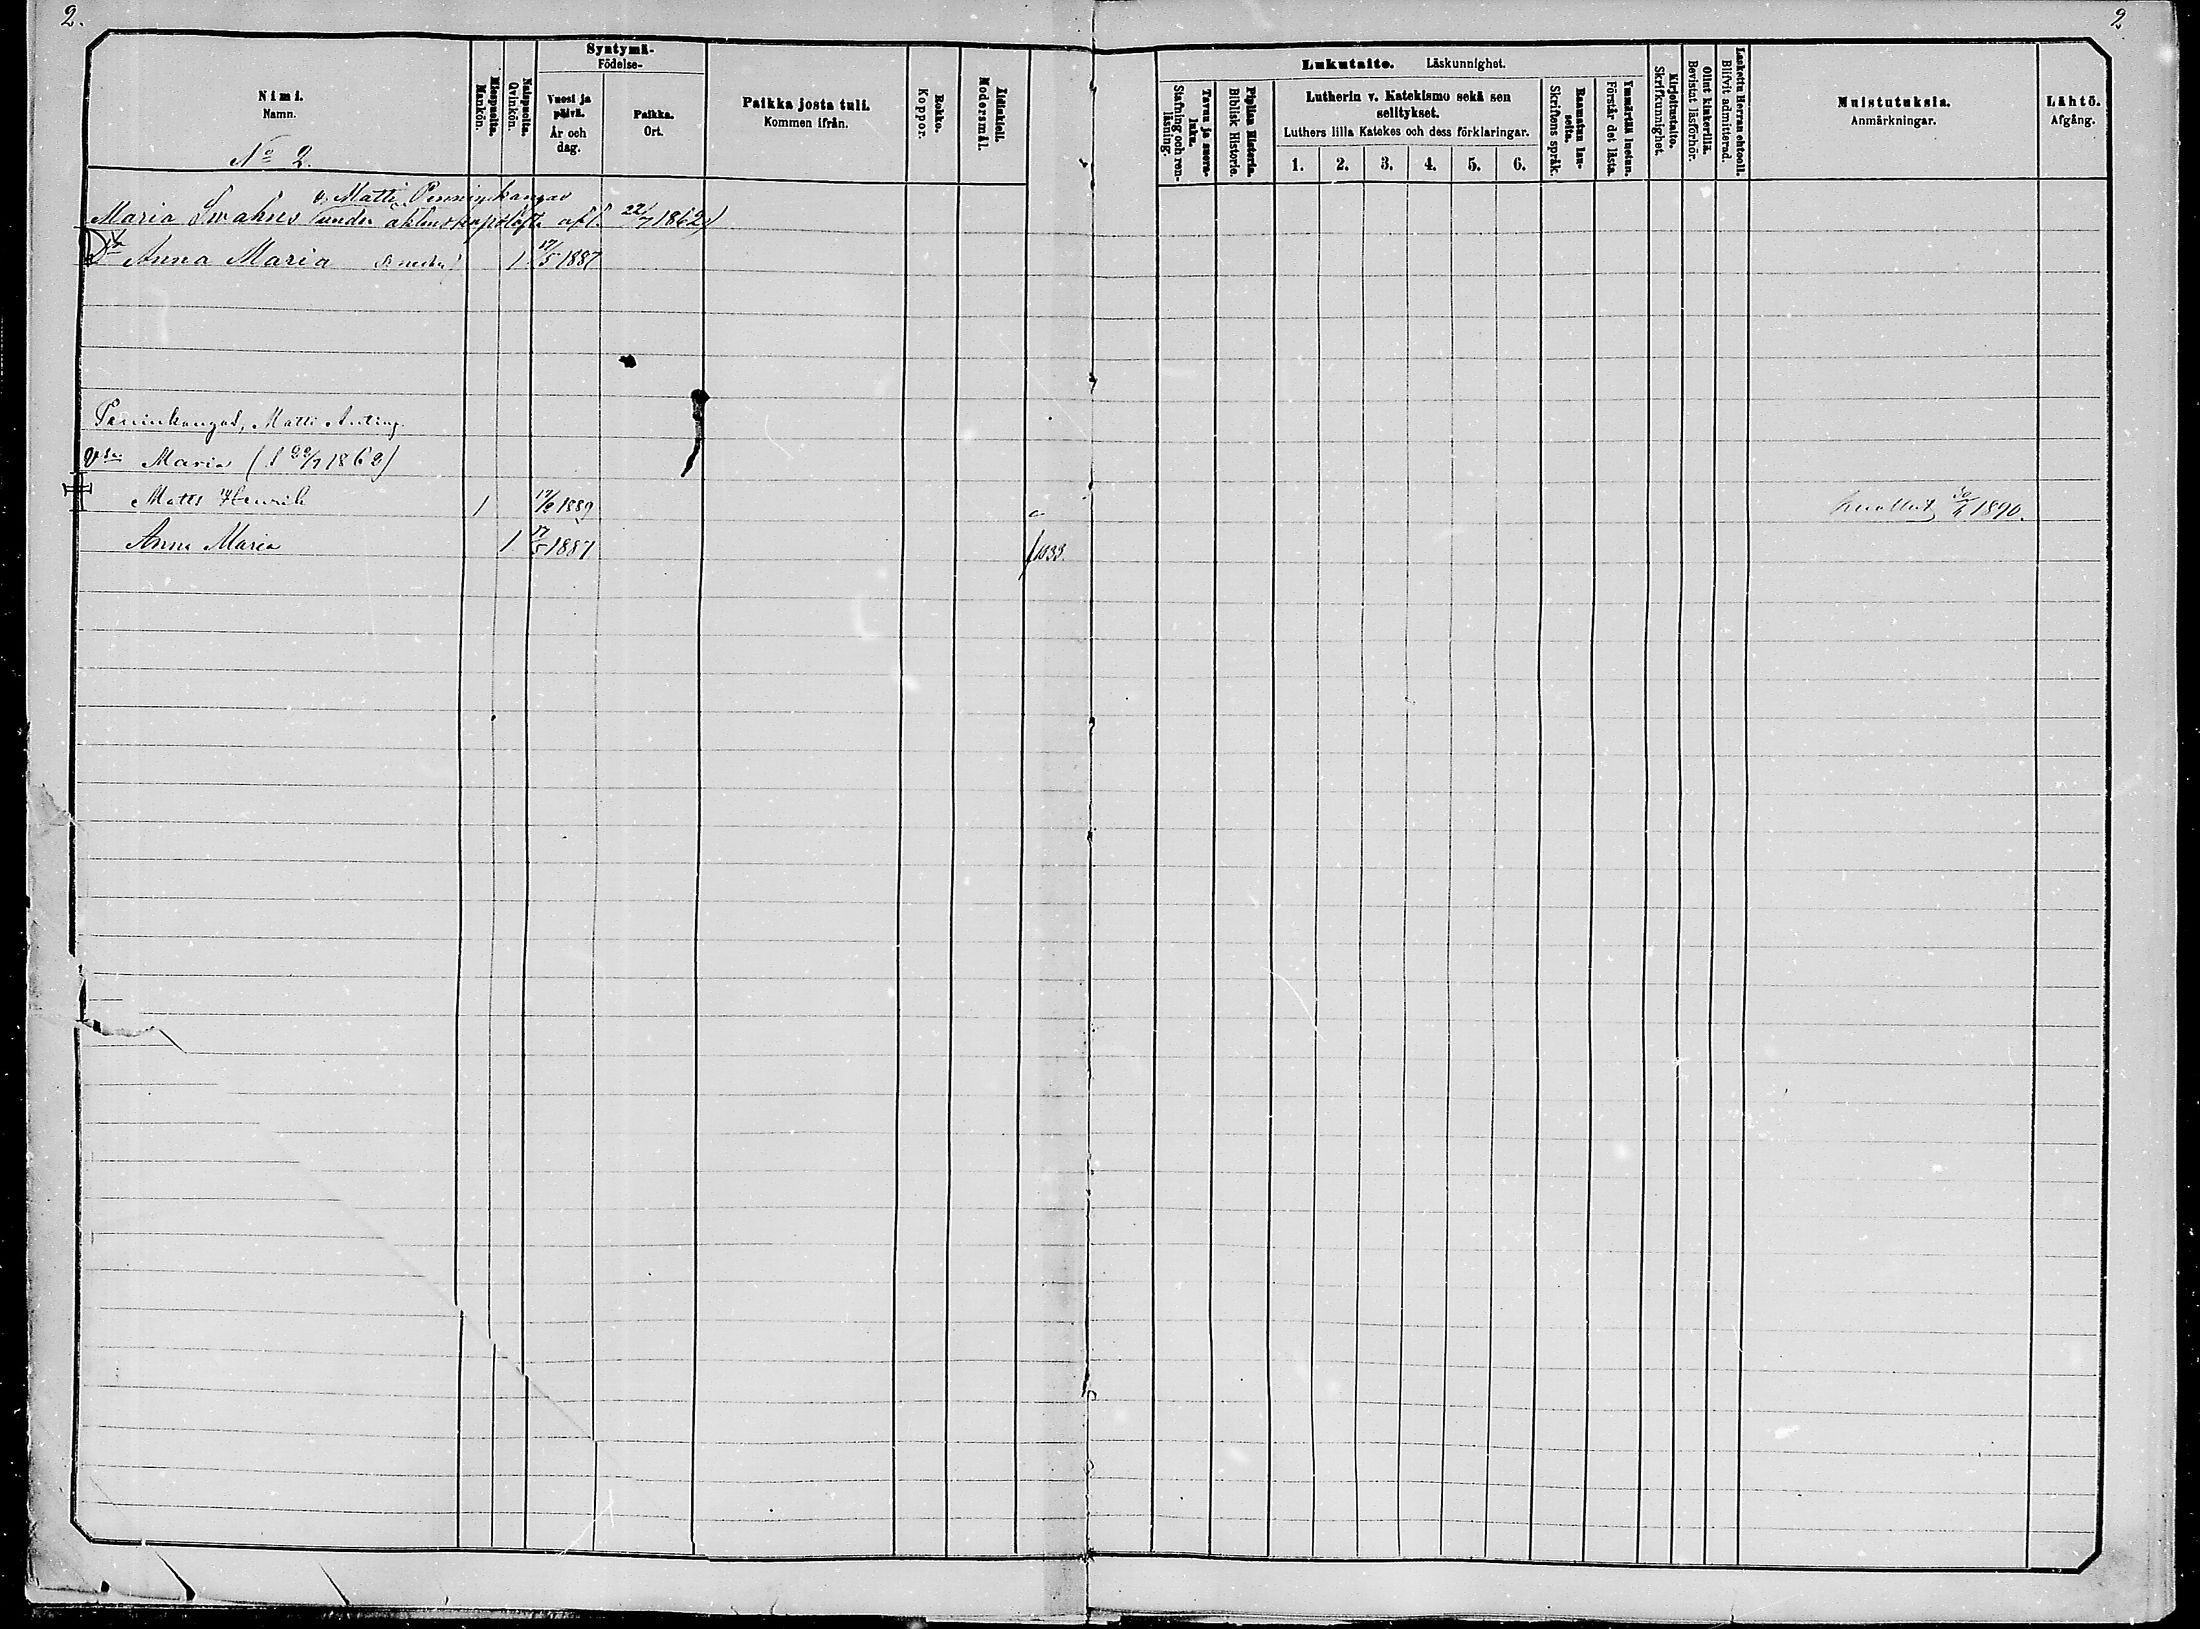 2.
2
Nimi.
Namn.
No 2.
Miespuolta.
Mankön.
Naispuolta.
Qvinkön.
Syntymä-
Födelse-
Vuosi ja
päivä.
År och
dag.
Paikka.
Ort.
Paikka josta tuli.
Kommen ifrån.
Rokko.
Koppor.
Äidinkieli.
Modersmål.
Lukutaito. Läskunnighet.
Tavau ja suora-
luku.
Stafning och ren-
läsning.
Piplian Historia.
Biblisk Historie.
Lutherin v. Katekismo sekä sen
selitykset.
Luthers lilla Katekes och dess förklaringar.
1. 2. 3. 4. 5. 6.
Raamatun lau-
seita.
Skriftens språk.
Ymmärtää luetun.
Förstår det lästa.
Kirjoitustaito.
Skrifkunnighet.
Ollut kinkerillä.
Bevistat läsförhör.
Laskettu Herran ehtooll.
Blifvit admitterad.
Muistutuksia.
Anmärkningar.
Lähtö.
Afgång.
o. Matti Penninkangas
Maria Swahns (under äktenskapslöfte af f. 22/7 1862)
Dr Anna Maria 1 17/5 1887
Penninkangas, Matti Anting.
Vsa Maria (f 22/7 1862)
Matts Henrik 1 1889 kuollut 1890.
Anna Maria 1 17/5 1887